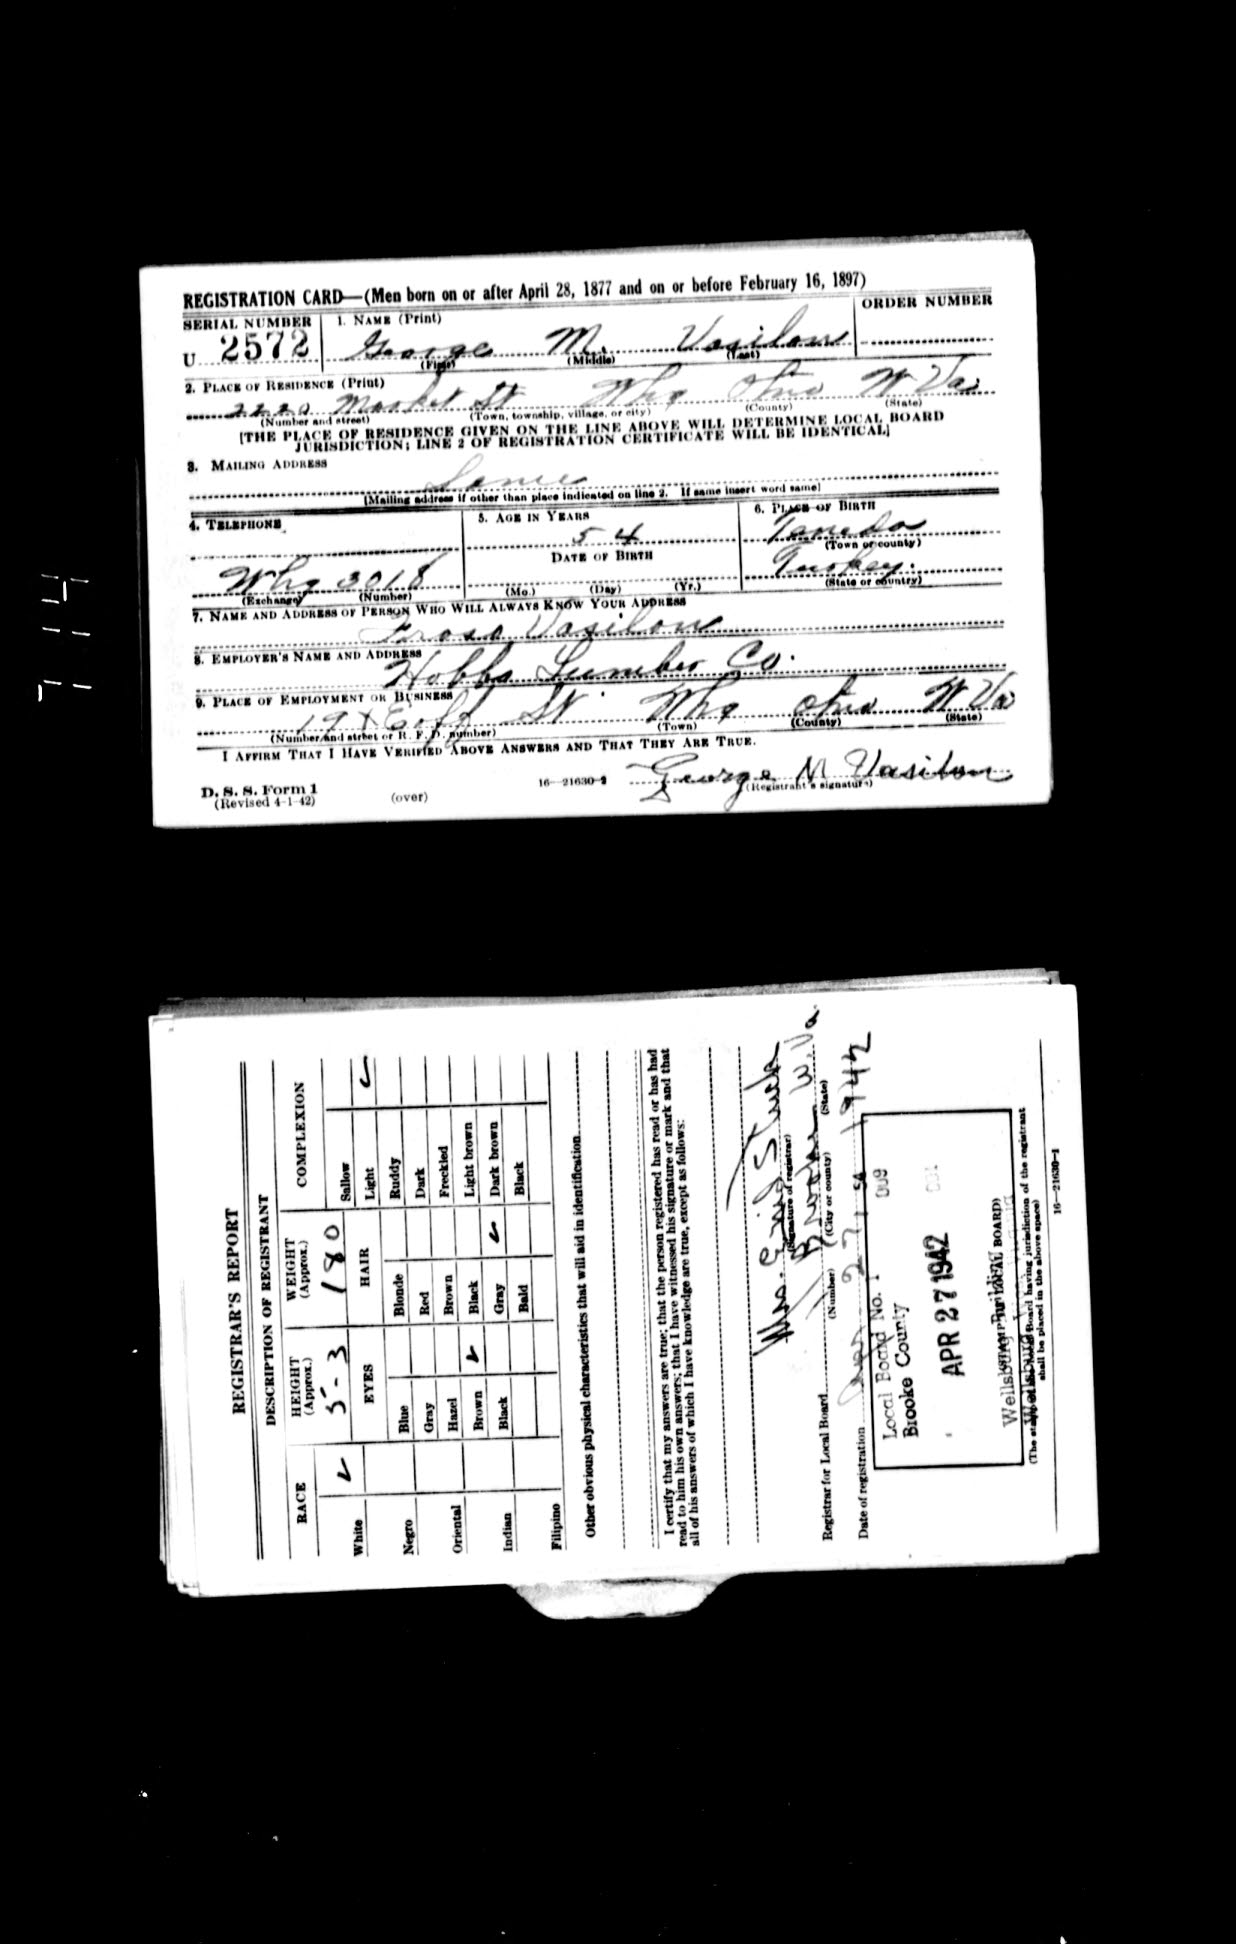 REGISTRATION CARD—(Men born on or after April 28, 1877 and on or before February 16, 1897)
SERIAL NUMBER
1. NAME (Print)
ORDER NUMBER
U 2572
George M. Vasilon
(First) (Middle) (Last)
2. PLACE OF RESIDENCE (Print)
2220 Market St Whg Ohio W Va
(Number and street) (Town, township, village, or city) (County) (State)
[THE PLACE OF RESIDENCE GIVEN ON THE LINE ABOVE WILL DETERMINE LOCAL BOARD
JURISDICTION; LINE 2 OF REGISTRATION CERTIFICATE WILL BE IDENTICAL]
3. MAILING ADDRESS
Same
[Mailing address if other than place indicated on line 2. If same insert word same]
4. TELEPHONE
5. AGE IN YEARS
6. PLACE OF BIRTH
54
Tenedo
(Town or county)
DATE OF BIRTH
Turkey.
Whg 3018
(Exchange) (Number)
(Mo.) (Day) (Yr.)
(State or country)
7. NAME AND ADDRESS OF PERSON WHO WILL ALWAYS KNOW YOUR ADDRESS
Froso Vasilon
8. EMPLOYER'S NAME AND ADDRESS
Hobbs Lumber Co.
9. PLACE OF EMPLOYMENT OR BUSINESS
19 & Eoff St. Whg Ohio W Va
(Number and street or R. F. D. number) (Town) (County) (State)
I AFFIRM THAT I HAVE VERIFIED ABOVE ANSWERS AND THAT THEY ARE TRUE.
D. S. S. Form 1
(Revised 4-1-42)
(over)
16—21630-2
George M Vasilon
(Registrant's signature)
REGISTRAR'S REPORT
DESCRIPTION OF REGISTRANT
RACE
HEIGHT (Approx.)
WEIGHT (Approx.)
COMPLEXION
5-3
180
White
Negro
Oriental
Indian
Filipino
EYES
Blue
Gray
Hazel
Brown
Black
HAIR
Blonde
Red
Brown
Black
Gray
Bald
Sallow
Light
Ruddy
Dark
Freckled
Light brown
Dark brown
Black
Other obvious physical characteristics that will aid in identification
I certify that my answers are true; that the person registered has read or has had
read to him his own answers; that I have witnessed his signature or mark and that
all of his answers of which I have knowledge are true, except as follows:
Mrs. Enid
(Signature of registrar)
Registrar for Local Board 1 Brooke W. Va.
(Number) (City or county) (State)
Date of registration 27, 1942
Local Board No. 1
Brooke County
009
APR 27 1942
Wellsburg
(STAMP OF LOCAL BOARD)
(The stamp of the Local Board having jurisdiction of the registrant
shall be placed in the above space)
16—21630-1